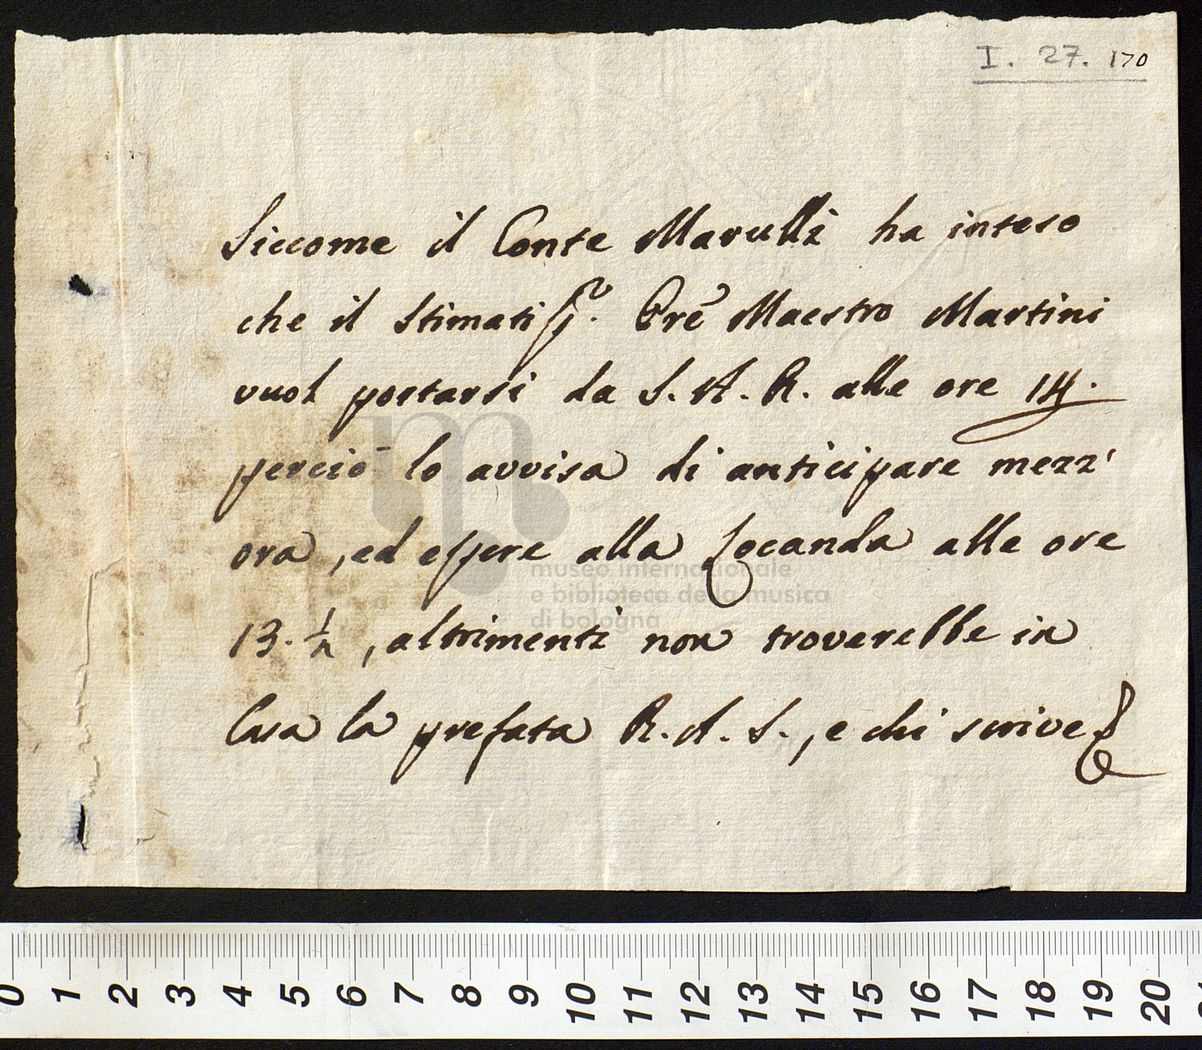 I. 27. 170
Siccome il Conte Marulli ha inteso
che il Stimatiss.º Pre Maestro Martini
vuol portarsi da S. A. R. alle ore 14.
perciò lo avvisa di anticipare mezz'
ora, ed essere alla Locanda alle ore
13. 1/2, altrimenti non troverebbe in
Casa la prefata R. A. S., e chi scrive
museo internazionale
e biblioteca della musica
di bologna
0 1 2 3 4 5 6 7 8 9 10 11 12 13 14 15 16 17 18 19 20